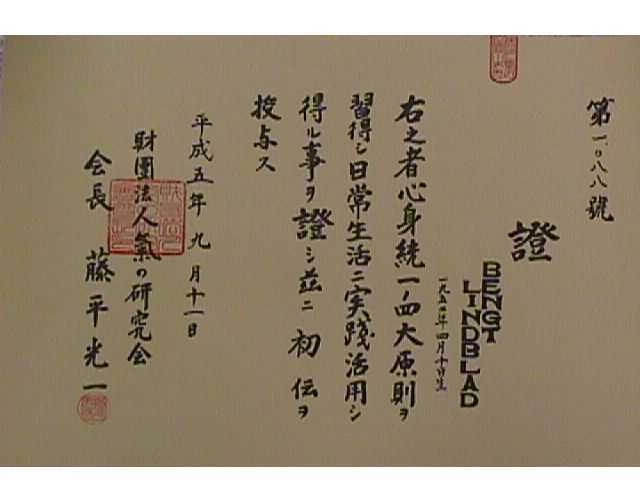 第一〇八八號
證
BENGT
LINDBLAD
右之者心身統一ノ四大原則ヲ
習得シ日常生活ニ実践活用シ
得ル事ヲ證シ茲ニ初伝ヲ
授与ス
平成五年九月十一日
財團法人氣の研究会
会長 藤平光一